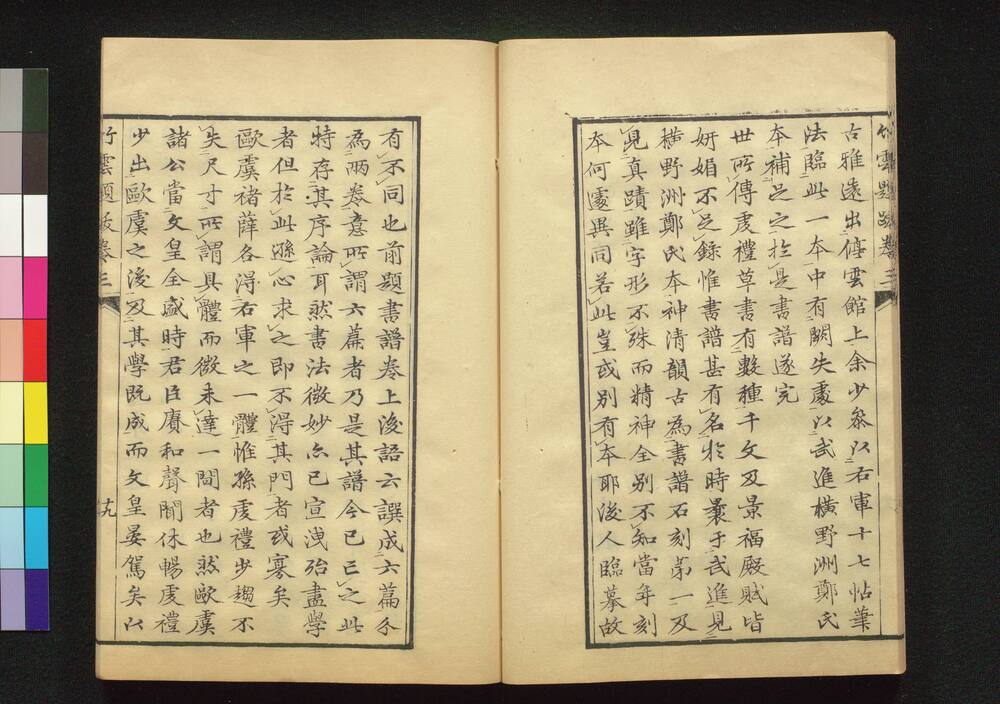 竹雲題跋卷三
古雅遠出停雲館上余少㕘以右軍十七帖筆
法臨此一本中有闕失處以武進橫野洲鄭氏
本補足之於是書譜遂完
世所傳虔禮草書有數種千文及景福殿賦皆
妍媚不足錄惟書譜甚有名於時曩于武進見
橫野洲鄭氏本神清韻古為書譜石刻第一及
見真蹟雖字形不殊而精神全別不知當年刻
本何處異同若此豈或別有本耶後人臨摹故
有不同也前題書譜卷上後語云譔成六篇分
為兩卷意所謂六篇者乃是其譜今已亡之此
特存其序論耳然書法微妙亦已宣洩殆盡學
者但於此遜心求之即不得其門者或寡矣
歐虞褚薛各得右軍之一體惟孫虔禮步趨不
失尺寸所謂具體而微未達一間者也然歐虞
諸公當文皇全盛時君臣賡和聲聞休暢虔禮
少出歐虞之後及其學既成而文皇晏駕矣以
竹雲題跋卷三
十九